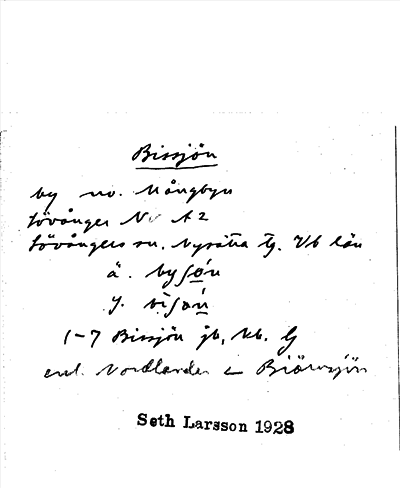 Bissjön
by no. Mångbyn
Lövånger NV A2
Lövångers sn. Nysätra tg. Vb län
ä. byſǿn
y. biſøn
1-7 Bissjön jb, kb. G
enl. Nordlander < Biörnsjön
Seth Larsson 1928